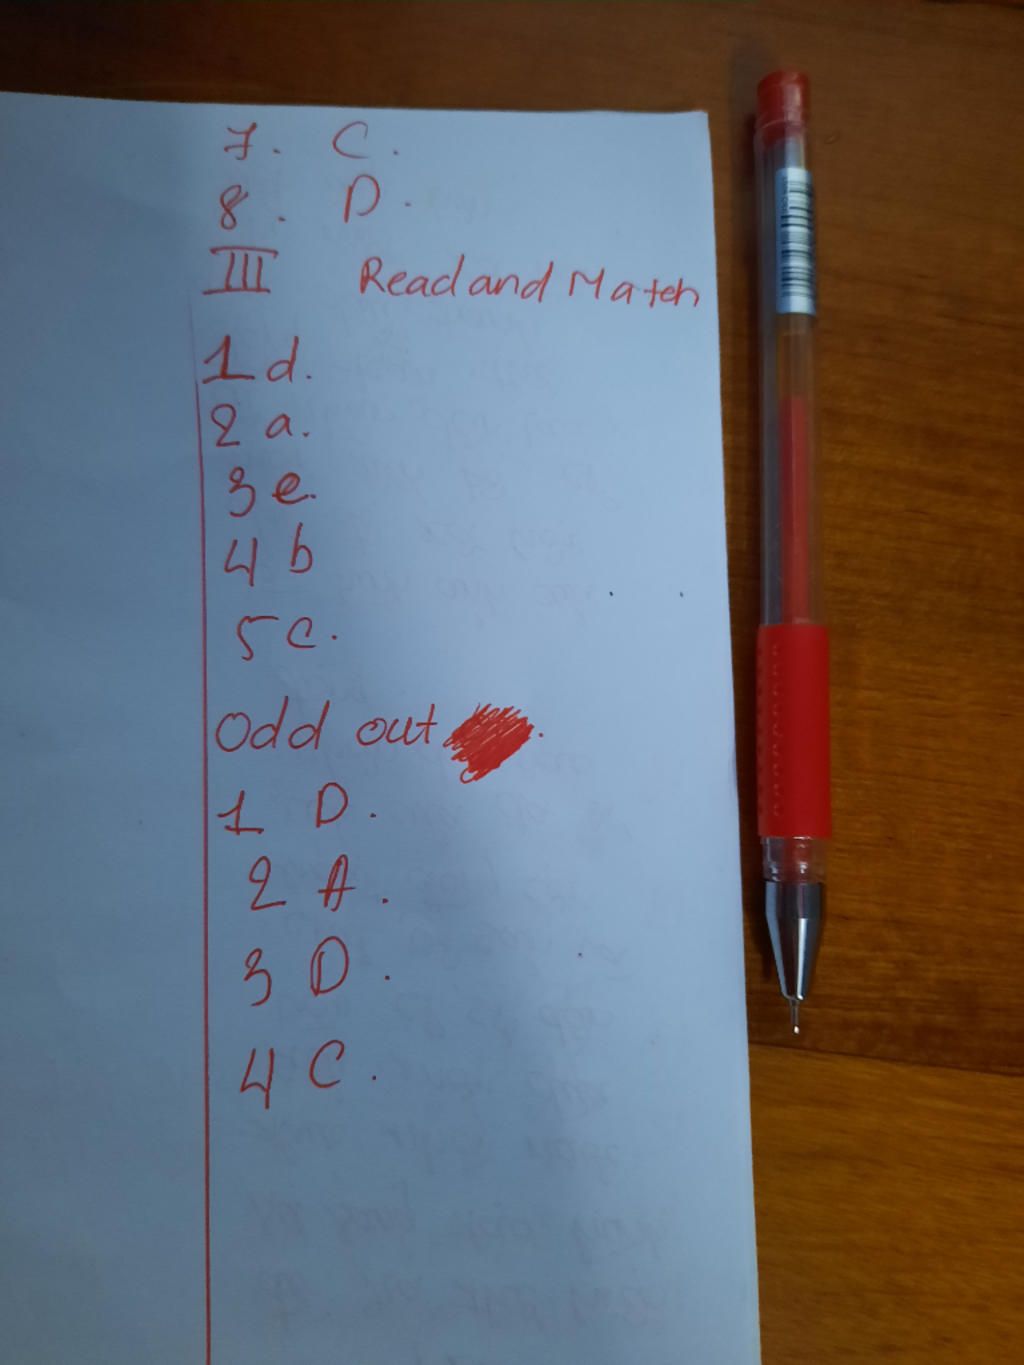 7. C.
8. D.
III Read and Match
1 d.
2 a.
3 e.
4 b
5 c.
Odd out
1 D.
2 A.
3 D.
4 C.